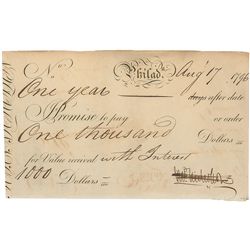 No
Philad. Aug 17 1796
One year days after date
I Promise to pay or order
One thousand Dollars
for Value received with Interest
1000 Dollars